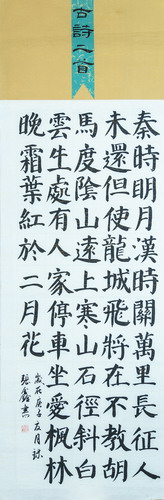 古詩二首
秦時明月漢時關萬里長征人
未還但使龍城飛將在不教胡
馬度陰山遠上寒山石徑斜白
雲生處有人家停車坐愛楓林
晚霜葉紅於二月花
歲在庚子